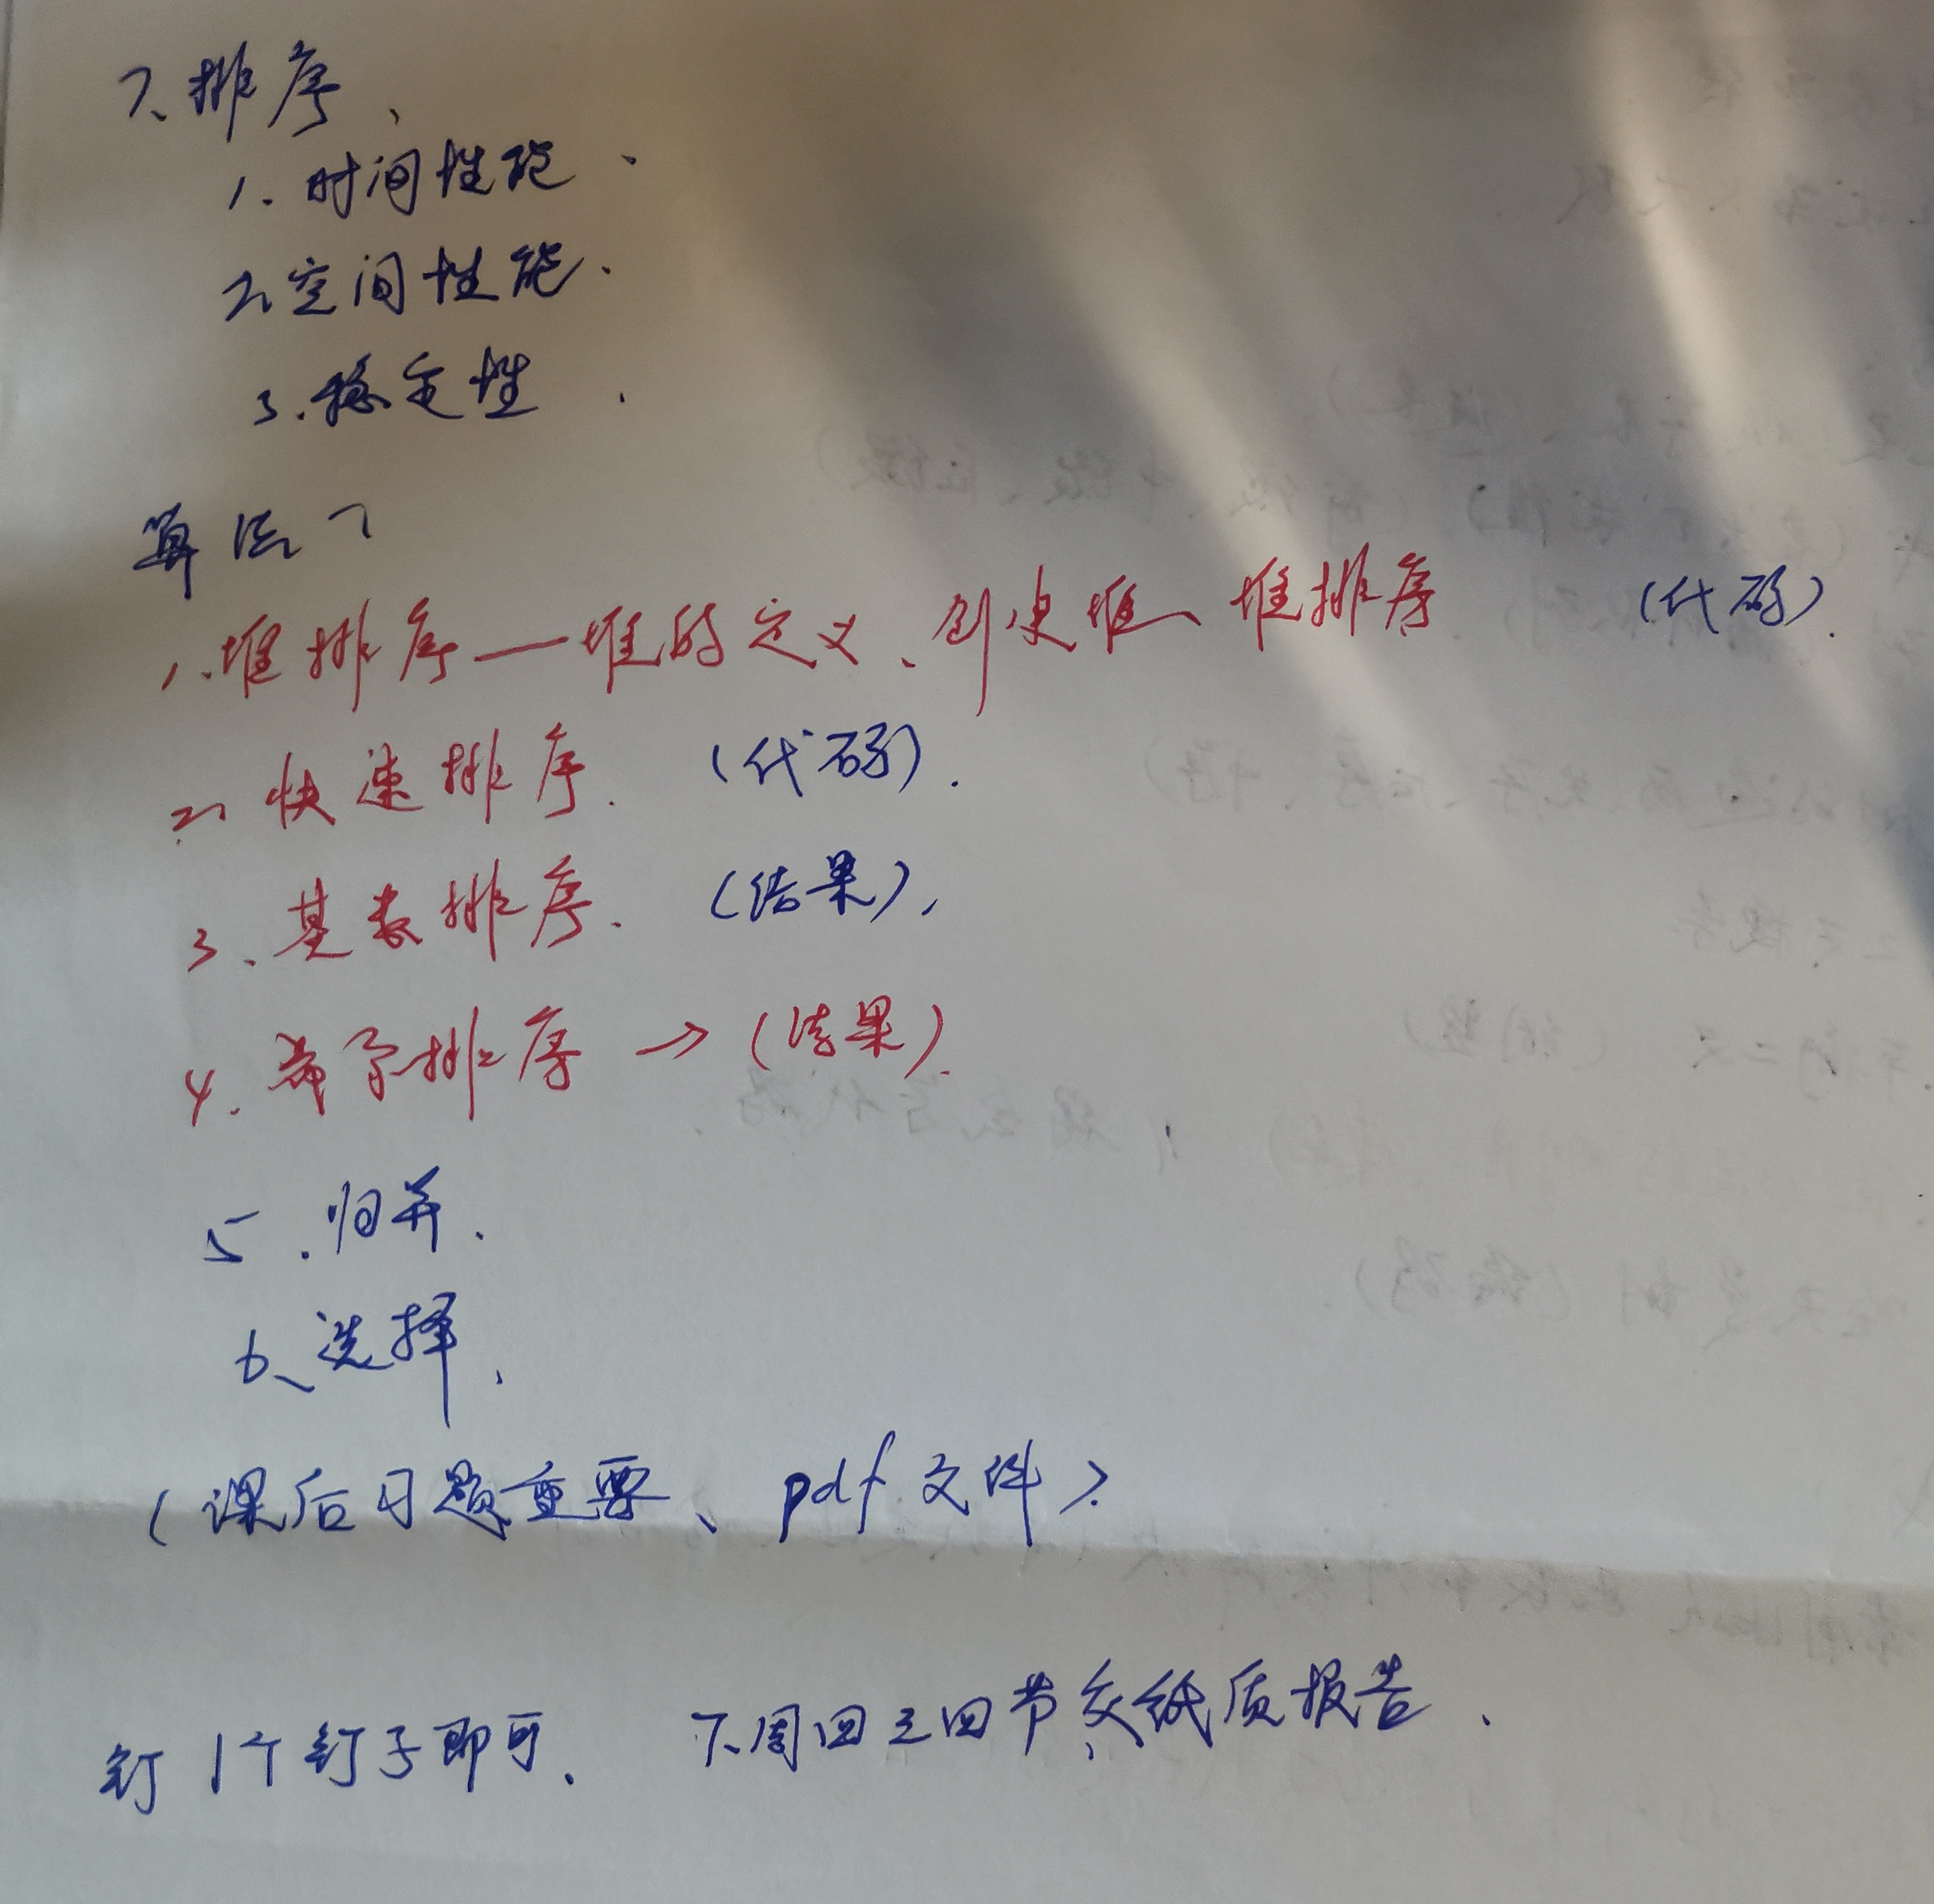 7、排序、
1. 时间性能.
2、空间性能.
3. 稳定性.
算法7
1. 堆排序——堆的定义、创建堆、堆排序 (代码).
2、快速排序. (代码).
3、基数排序. (结果).
4. 希尔排序 → (结果).
5. 归并.
6、选择.
(课后习题重要、pdf文件).
钉1个钉子即可. 下周四三四节交纸质报告.